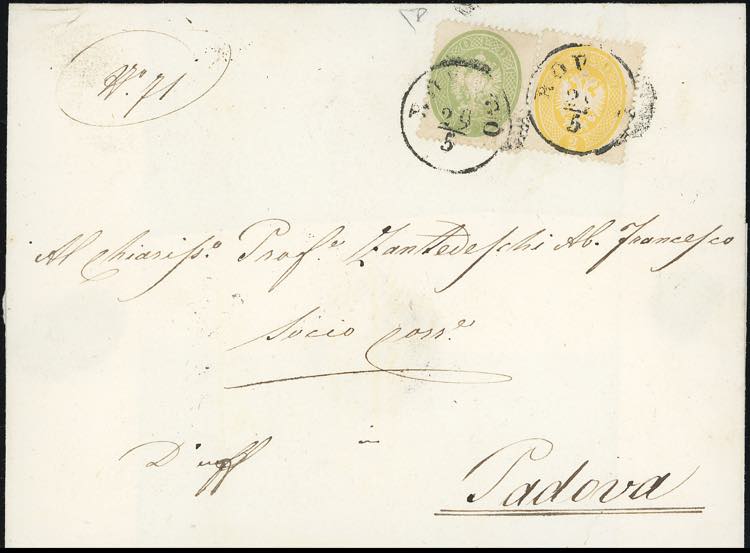 N.° 71
ROVIGO
29
5
ROV
2
5
Al Chiariss.° Prof.e Zantedeschi Ab. Francesco
Socio Corr.e
D'uff
in
Padova